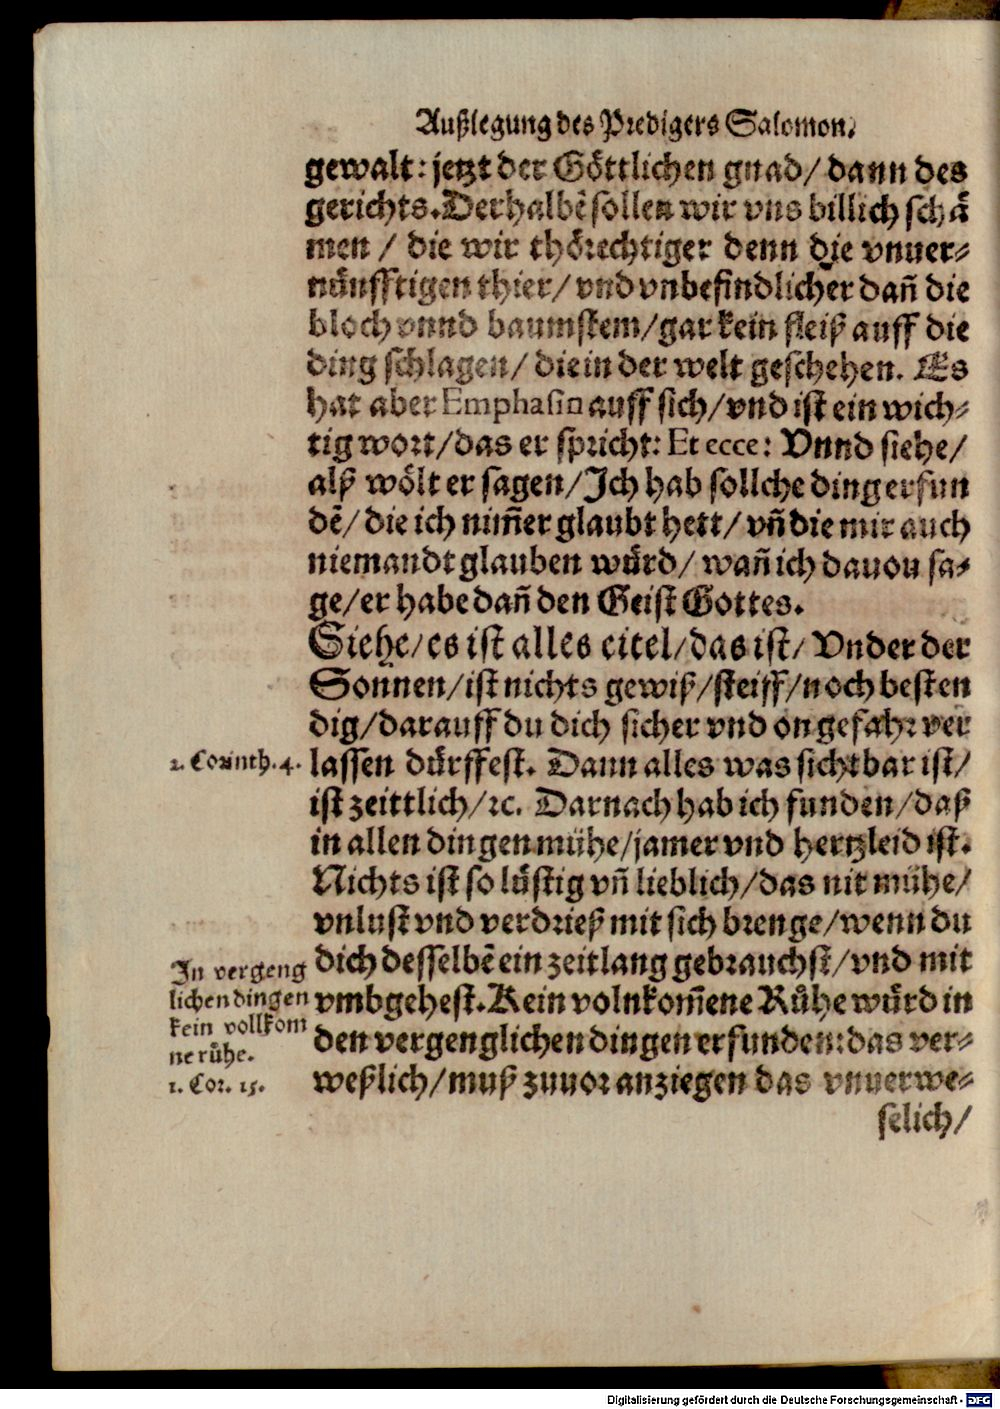 Außlegung des Predigers Salomon.
gewalt: jetzt der Göttlichen gnad/ dann des
gerichts. Derhalbẽ sollen wir vns billich schä
men / die wir thörechtiger denn die vnuer-
nünfftigen thier/ vnd vnbefindlicher dañ die
bloch vnnd baumstem/ gar kein fleiß auff die
ding schlagen/ die in der welt geschehen. Es
hat aber Emphasin auff sich/ vnd ist ein wich-
tig wort/ das er spricht: Et ecce: Vnnd siehe/
alß wölt er sagen/ Ich hab sollche ding erfun
dẽ/ die ich nim̃er glaubt hett/ vñ die mir auch
niemandt glauben würd/ wañ ich dauon sa-
ge/ er habe dañ den Geist Gottes.
Siehe/ es ist alles eitel/ das ist/ Vnder der
Sonnen/ ist nichts gewiß/ steiff/ noch besten
dig/ darauff du dich sicher vnd on gefahr ver
2. Corinth. 4.
lassen dürffest. Dann alles was sichtbar ist/
ist zeittlich/ ꝛc. Darnach hab ich funden/ daß
in allen dingen mühe/ jamer vnd hertzleid ist.
Nichts ist so lüstig vñ lieblich/ das nit mühe/
vnlust vnd verdrieß mit sich brenge/ wenn du
dich desselbẽ ein zeitlang gebrauchst/ vnd mit
vmbgehest. Kein volnkom̃ene Růhe würd in
den vergenglichen dingen erfunden: das ver-
weßlich/ muß zuuor anziegen das vnuerwe-
In vergeng
lichen dingen
kein vollkom
ne růhe.
1. Cor. 15.
selich/
Digitalisierung gefördert durch die Deutsche Forschungsgemeinschaft - DFG